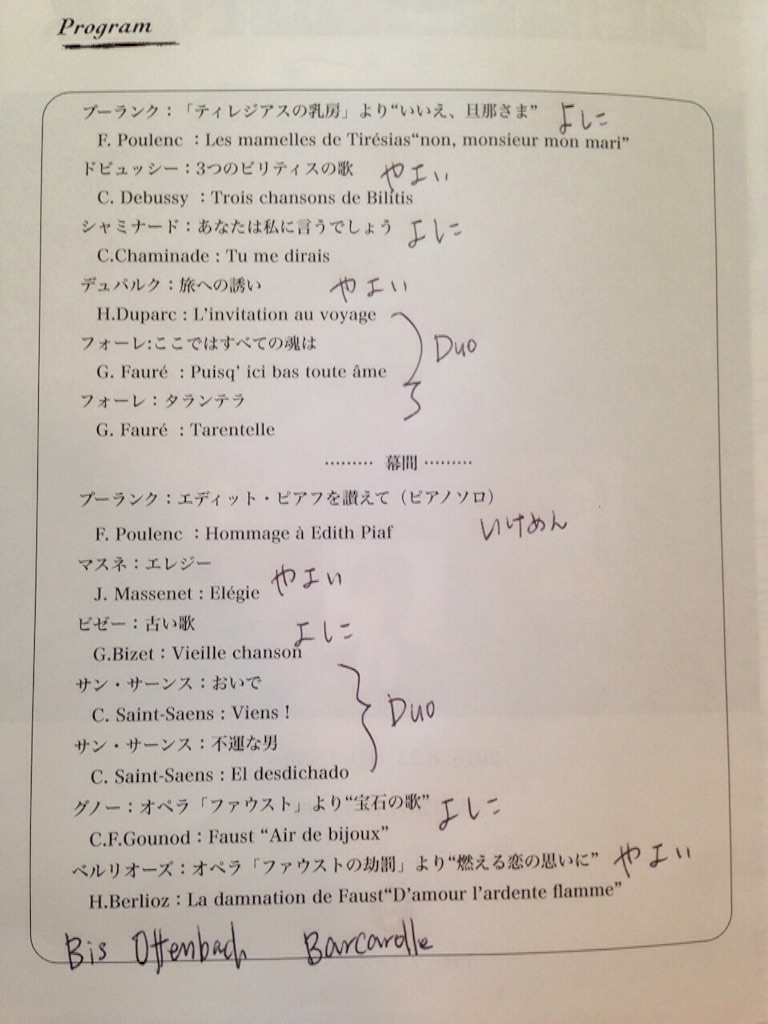 Program
プーランク：「ティレジアスの乳房」より“いいえ、旦那さま” よしこ
F. Poulenc : Les mamelles de Tirésias“non, monsieur mon mari”
ドビュッシー：3つのビリティスの歌 やよい
C. Debussy : Trois chansons de Bilitis
シャミナード：あなたは私に言うでしょう よしこ
C.Chaminade : Tu me dirais
デュパルク：旅への誘い やよい
H.Duparc : L’invitation au voyage
フォーレ:ここではすべての魂は
G. Fauré : Puisq’ ici bas toute âme Duo
フォーレ：タランテラ
G. Fauré : Tarentelle
……… 幕間 ………
プーランク：エディット・ピアフを讃えて（ピアノソロ）
F. Poulenc : Hommage à Edith Piaf いけめん
マスネ：エレジー
J. Massenet : Elégie やよい
ビゼー：古い歌 よしこ
G.Bizet : Vieille chanson
サン・サーンス：おいで
C. Saint-Saens : Viens ! Duo
サン・サーンス：不運な男
C. Saint-Saens : El desdichado
グノー：オペラ「ファウスト」より“宝石の歌” よしこ
C.F.Gounod : Faust “Air de bijoux”
ベルリオーズ：オペラ「ファウストの劫罰」より“燃える恋の思いに” やよい
H.Berlioz : La damnation de Faust“D’amour l’ardente flamme”
Bis Offenbach Barcarolle